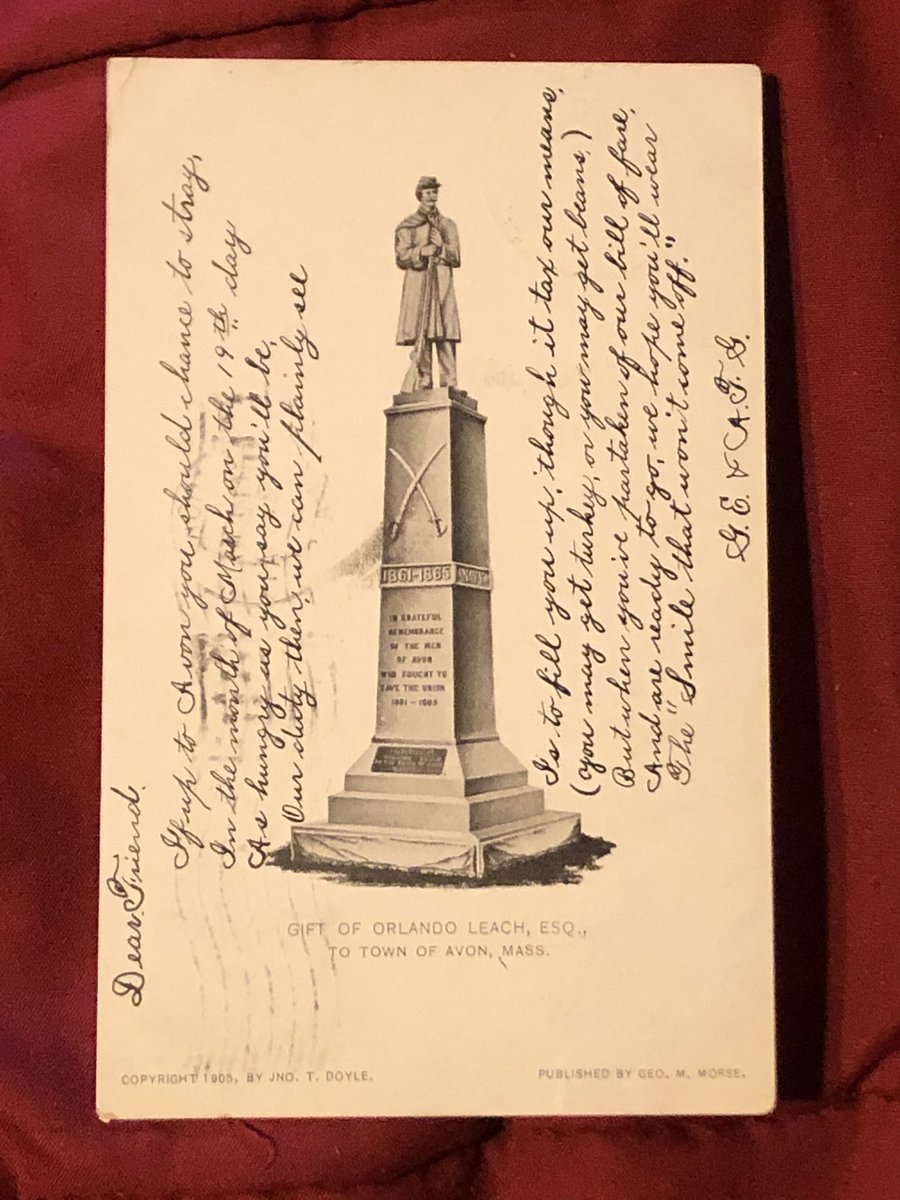 Dear Friend.
If up to Avon you should chance to stray,
In the month of March on the 19th day
As hungry as you say you'll be,
Our duty then, we can plainly see
Is to fill you up, though it tax our means,
(you may get turkey, or you may get beans,)
But when you've partaken of our bill of fare,
And are ready to go, we hope you'll wear
The "Smile that won't come off."
G. E. & A. F. G.
1861-1865
IN GRATEFUL
REMEMBRANCE
OF THE MEN
OF AVON
WHO FOUGHT TO
SAVE THE UNION
1861-1865
GIFT OF ORLANDO LEACH, ESQ.,
TO TOWN OF AVON, MASS.
COPYRIGHT 1905, BY JNO. T. DOYLE.
PUBLISHED BY GEO. M. MORSE.